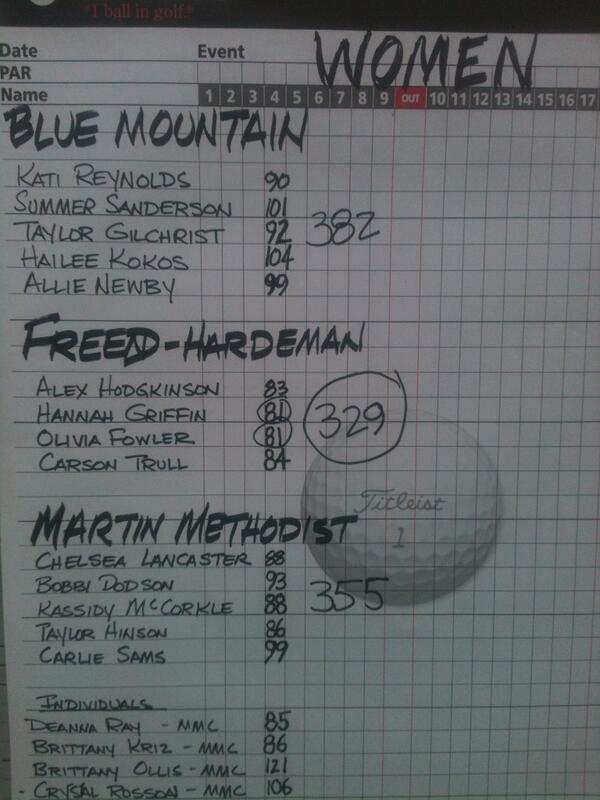 "I ball in golf."
Date Event WOMEN
PAR
Name 1 2 3 4 5 6 7 8 9 OUT 10 11 12 13 14 15 16 17
BLUE MOUNTAIN
KATI REYNOLDS 90
SUMMER SANDERSON 101
TAYLOR GILCHRIST 92 382
HAILEE KOKOS 104
ALLIE NEWBY 99
FREED-HARDEMAN
ALEX HODGKINSON 83
HANNAH GRIFFIN 81 329
OLIVIA FOWLER 81
CARSON TRULL 84
Titleist
1
MARTIN METHODIST
CHELSEA LANCASTER 88
BOBBI DODSON 93
KASSIDY McCORKLE 88 355
TAYLOR HINSON 86
CARLIE SAMS 99
INDIVIDUALS
DEANNA RAY - MMC 85
BRITTANY KRIZ - MMC 86
BRITTANY OLLIS - MMC 121
- CRYSAL ROSSON - MMC 106